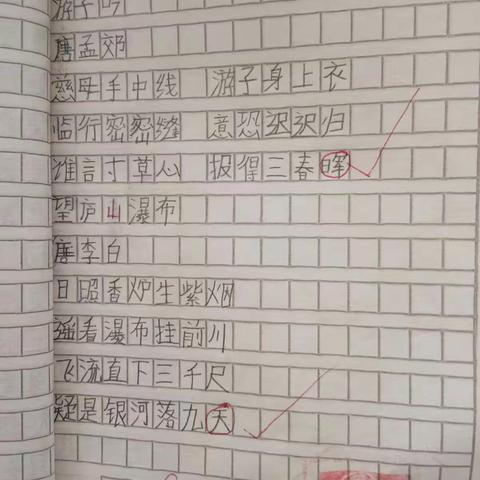 游子吟
唐孟郊
慈母手中线 游子身上衣
临行密密缝 意恐迟迟归
谁言寸草心 报得三春晖
望庐山瀑布
唐李白
日照香炉生紫烟
遥看瀑布挂前川
飞流直下三千尺
疑是银河落九天